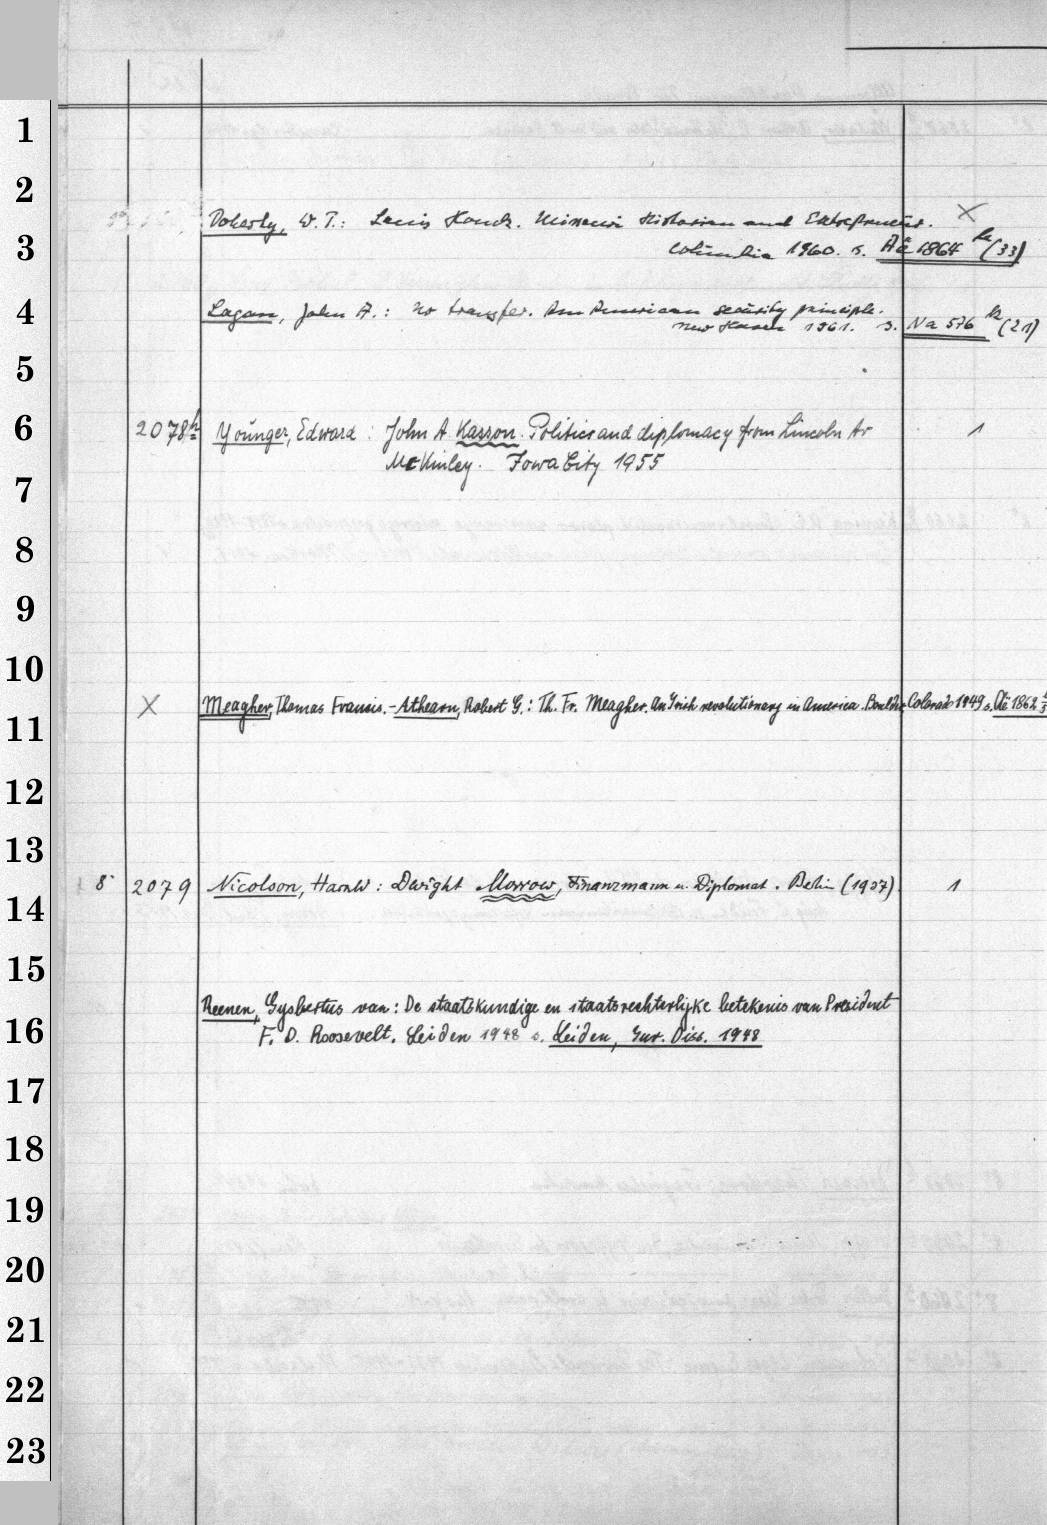 1
2
Doherty, W. T.: Louis Houck. Missouri Historian and Entrepreneur. X
3
Columbia 1960. s. Aê 1864 ha (33)
4
Logan, John A.: No transfer. An American security principle.
New Haven 1961. s. Na 576 ha (21)
5
6
2078h Younger, Edward: John A Kasson. Politics and diplomacy from Lincoln to 1
McKinley. Iowa City 1955
7
8
9
10
X Meagher, Thomas Francis. - Athearn, Robert G.: Th. Fr. Meagher. An Irish revolutionary in America. Boulder, Colorado 1949 s. Aê 1862
11
12
13
8° 2079 Nicolson, Harold: Dwight Morrow, Finanzmann u. Diplomat. Berlin (1937). 1
14
15
Reenen, Gysbertus van: De staatskundige en staatsrechterlijke betekenis van President
16
F. D. Roosevelt. Leiden 1948 s. Leiden, Jur. Diss. 1948
17
18
19
20
21
22
23